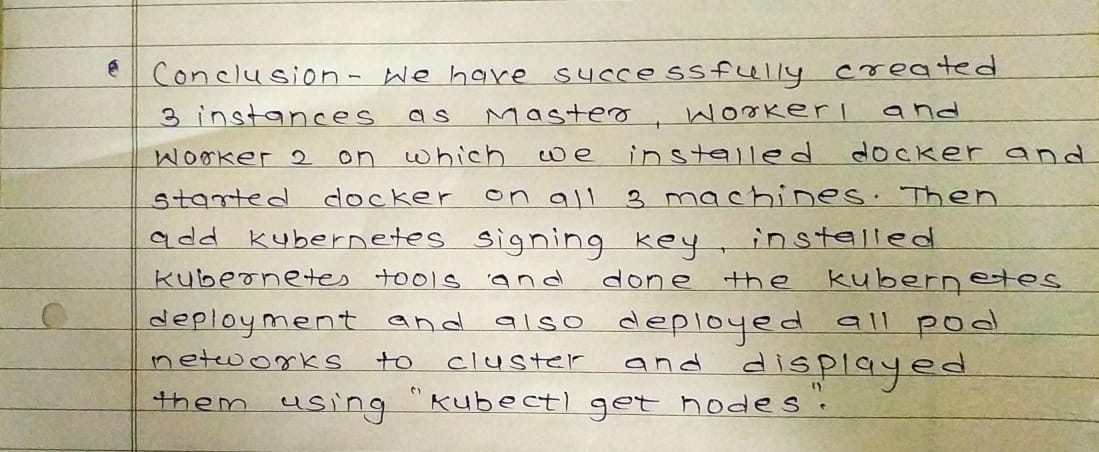 • Conclusion - We have successfully created
3 instances as Master, Worker1 and
Worker 2 on which we installed docker and
started docker on all 3 machines. Then
add kubernetes signing key, installed
kubernetes tools and done the kubernetes
deployment and also deployed all pod
networks to cluster and displayed
them using "kubectl get nodes".